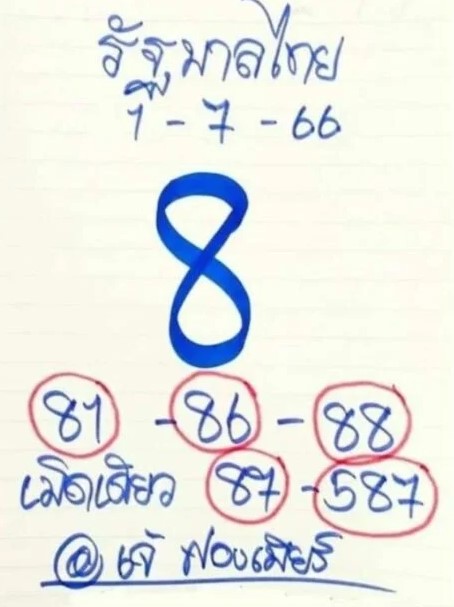 รัฐบาลไทย
1-7-66
8
81 - 86 - 88
เม็ดเดียว 87 - 587
@ เจ๊ ฟองเบียร์